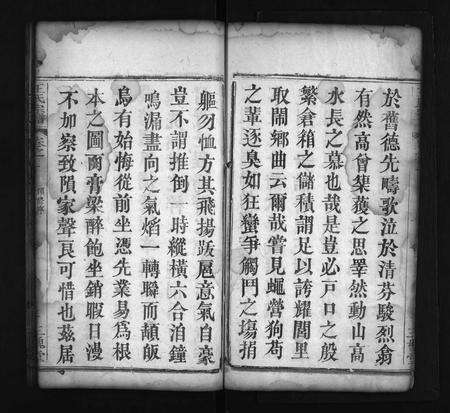 於舊德先疇歌泣於清芬駿烈翕
有然高曾榘矱之思睪然動山高
水長之慕也哉是豈必戸口之殷
繁倉箱之儲積謂足以誇耀閭里
取鬧鄉曲云爾哉嘗見蠅營狗苟
之輩逐臭如狂蠻爭觸鬥之塲捐
軀勿恤方其飛揚跋扈意氣自豪
豈不謂推倒一時縱橫六合洎鐘
鳴漏盡向之氣熖一轉瞬而頹敗
烏有始悔從前坐憑先業易為根
本之圖爾膏粱醉飽坐銷暇日漫
不加察致隕家聲良可惜也茲居